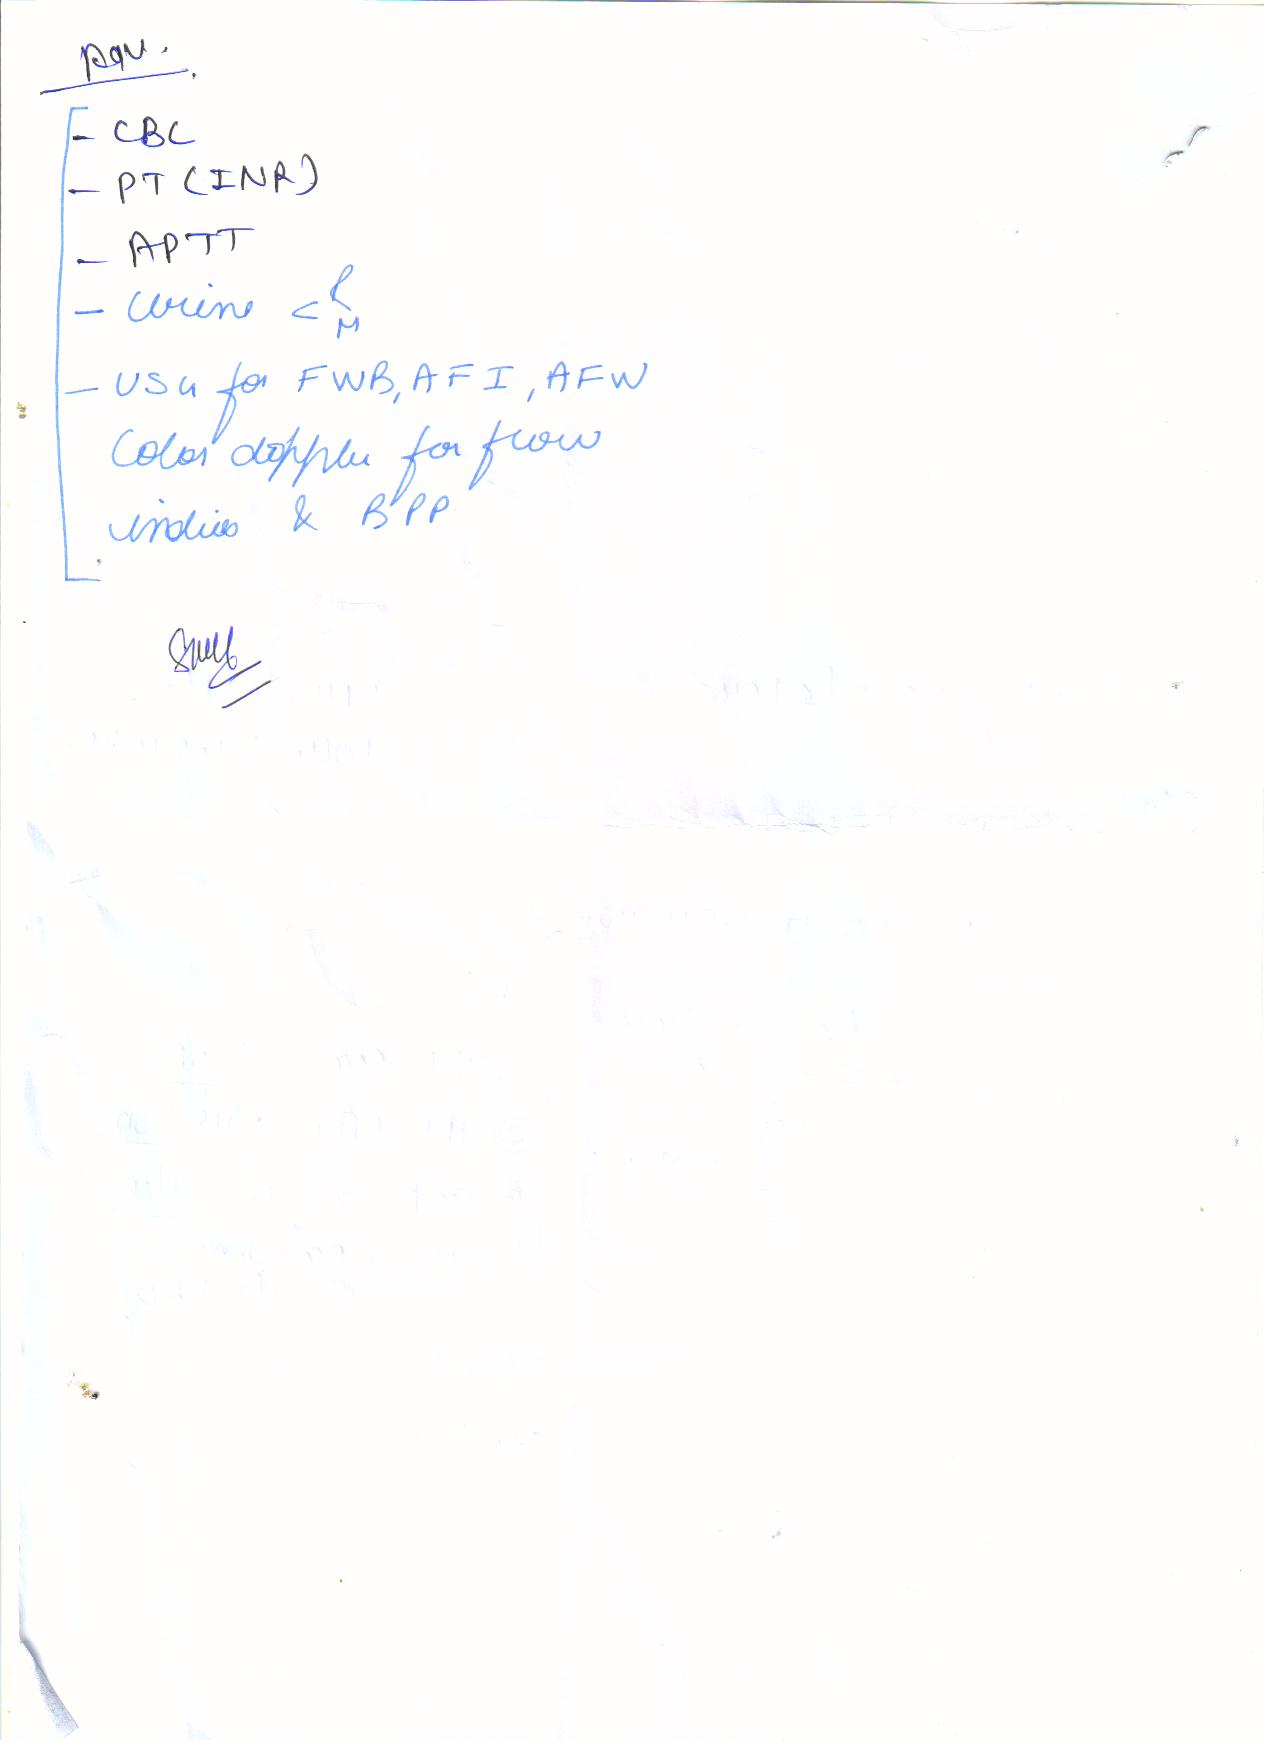 Adv.
- CBC
- PT (INR)
- APTT
- Urine < R
M
- USG for FWB, AFI, AFW
Color doppler for flow
indices & BPP